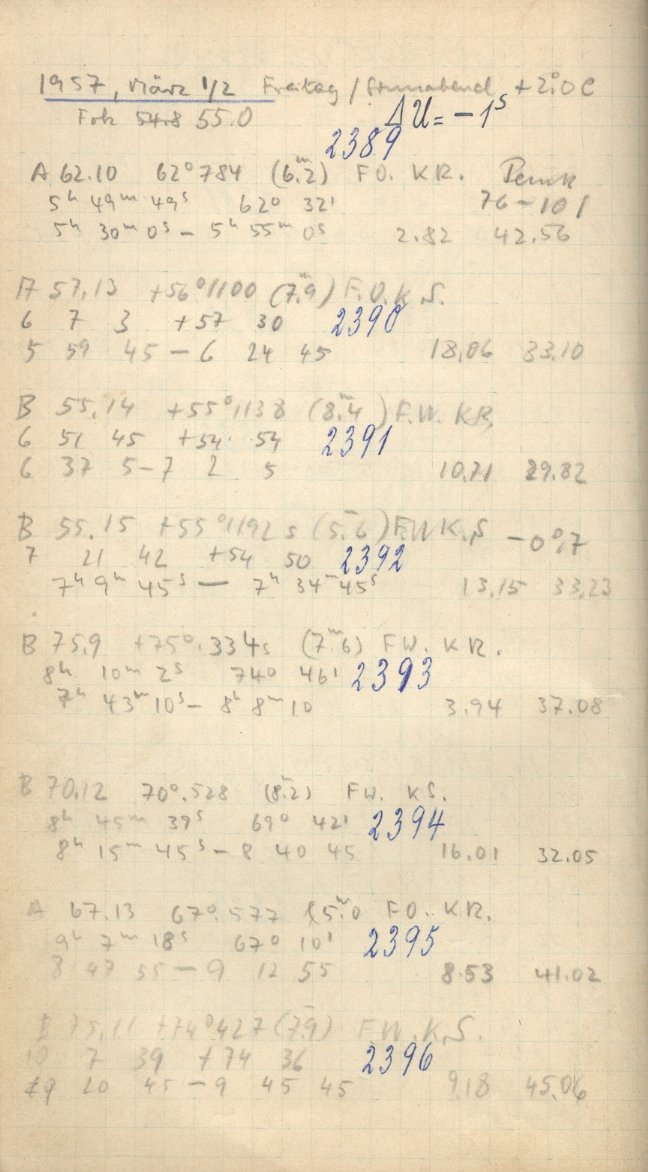 1957, März 1/2 Freitag / Sonnabend +2°.0 C
Fok 54.8 55.0 ΔU = -1ˢ
2389
A 62.10 62°784 (6ᵐ.2) F.O. K.R.
5ʰ 49ᵐ 49ˢ 62° 32' 76-101
5ʰ 30ᵐ 0ˢ - 5ʰ 55ᵐ 0ˢ 2.82 42.56
A 57.13 +56°1100 (7ᵐ.9) F.O.K.S.
6 7 3 +57 30 2390
5 59 45 - 6 24 45 18.06 33.10
B 55.14 +55°1138 (8ᵐ.4) F.W. KR.
6 51 45 +54 54 2391
6 37 5 - 7 2 5 10.71 29.82
B 55.15 +55°1192 s (5ᵐ.6) F.W K.S -0°.7
7 21 42 +54 50 2392
7ʰ 9ᵐ 45ˢ - 7ʰ 34ᵐ 45ˢ 13.15 33.23
B 75.9 +75°.334s (7ᵐ.6) F.W. K.R.
8ʰ 10ᵐ 2ˢ 74° 46' 2393
7ʰ 43ᵐ 10ˢ - 8ʰ 8ᵐ 10 3.94 37.08
B 70.12 70°.528 (8ᵐ.2) F.W. K.S.
8ʰ 45ᵐ 39ˢ 69° 42' 2394
8ʰ 15ᵐ 45ˢ - 8 40 45 16.01 32.05
A 67.13 67°.577 (5ᵐ.0 F.O. K.R.
9ʰ 7ᵐ 18ˢ 67° 10' 2395
8 47 55 - 9 12 55 8.53 41.02
75.11 +74°427 (7.9) F.W. K.S.
10 7 39 +74 36 2396
9 20 45 - 9 45 45 9.18 45.06